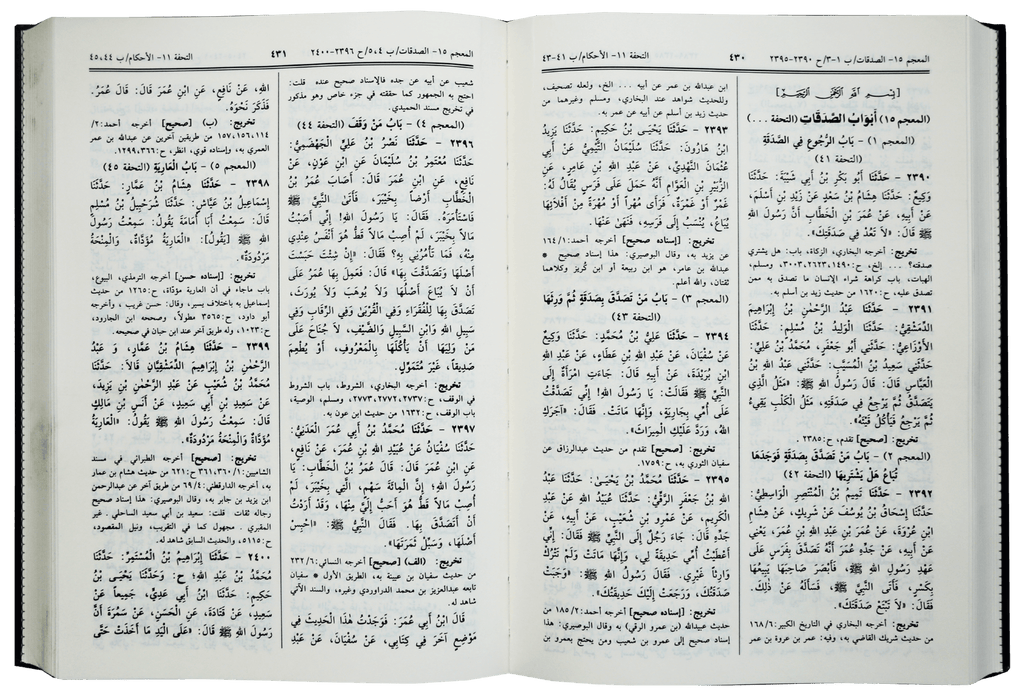 المعجم ١٥- الصدقات/ ب ١-٣/ ح ٢٣٩٠-٢٣٩٥
٤٣٠
التحفة ١١- الأحكام/ ب ٤١-٤٣
بِسْمِ اللهِ الرَّحْمٰنِ الرَّحِيْمِ
(المعجم ١٥) أَبْوَابُ الصَّدَقَاتِ (التحفة ...)
(المعجم ١) - بَابُ الرُّجُوعِ فِي الصَّدَقَةِ
(التحفة ٤١)
٢٣٩٠ - حَدَّثَنَا أَبُو بَكْرِ بْنُ أَبِي شَيْبَةَ: حَدَّثَنَا
وَكِيعٌ: حَدَّثَنَا هِشَامُ بْنُ سَعْدٍ عَنْ زَيْدِ بْنِ أَسْلَمَ،
عَنْ أَبِيهِ، عَنْ عُمَرَ بْنِ الْخَطَّابِ أَنَّ رَسُولَ اللهِ
ﷺ قَالَ: «لاَ تَعُدْ فِي صَدَقَتِكَ».
تخريج: أخرجه البخاري، الزكاة، باب: هل يشتري
صدقته؟ ... إلخ، ح:١٤٩٠، ٢٦٢٣، ٣٠٠٣، ومسلم،
الهبات، باب كراهة شراء الإنسان ما تصدق به ممن
تصدق عليه، ح:١٦٢٠ من حديث زيد بن أسلم به.
٢٣٩١ - حَدَّثَنَا عَبْدُ الرَّحْمٰنِ بْنُ إِبْرَاهِيمَ
الدِّمَشْقِيُّ: حَدَّثَنَا الْوَلِيدُ بْنُ مُسْلِمٍ: حَدَّثَنَا
الْأَوْزَاعِيُّ: حَدَّثَنِي أَبُو جَعْفَرٍ، مُحَمَّدُ بْنُ عَلِيٍّ:
حَدَّثَنِي سَعِيدُ بْنُ الْمُسَيَّبِ: حَدَّثَنِي عَبْدُ اللهِ بْنُ
الْعَبَّاسِ قَالَ: قَالَ رَسُولُ اللهِ ﷺ: «مَثَلُ الَّذِي
يَتَصَدَّقُ ثُمَّ يَرْجِعُ فِي صَدَقَتِهِ، مَثَلُ الْكَلْبِ يَقِيءُ
ثُمَّ يَرْجِعُ فَيَأْكُلُ قَيْئَهُ».
تخريج: [صحيح] تقدم، ح:٢٣٨٥.
(المعجم ٢) - بَابُ مَنْ تَصَدَّقَ بِصَدَقَةٍ فَوَجَدَهَا
تُبَاعُ هَلْ يَشْتَرِيهَا (التحفة ٤٢)
٢٣٩٢ - حَدَّثَنَا تَمِيمُ بْنُ الْمُنْتَصِرِ الْوَاسِطِيُّ:
حَدَّثَنَا إِسْحَاقُ بْنُ يُوسُفَ عَنْ شَرِيكٍ، عَنْ هِشَامِ
ابْنِ عُرْوَةَ، عَنْ عُمَرَ بْنِ عَبْدِ اللهِ بْنِ عُمَرَ، يَعْنِي
عَنْ أَبِيهِ، عَنْ جَدِّهِ عُمَرَ أَنَّهُ تَصَدَّقَ بِفَرَسٍ عَلَى
عَهْدِ رَسُولِ اللهِ ﷺ، فَأَبْصَرَ صَاحِبَهَا يَبِيعُهَا
بِكَسْرٍ، فَأَتَى النَّبِيَّ ﷺ، فَسَأَلَهُ عَنْ ذٰلِكَ.
فَقَالَ: «لاَ تَبْتَعْ صَدَقَتَكَ».
تخريج: أخرجه البخاري في التاريخ الكبير:١٦٨/٦
من حديث شريك القاضي به، وفيه: عمر بن عروة بن عمر
ابن عبدالله بن عمر عن أبيه ... الخ، ولعله تصحيف،
وللحديث شواهد عند البخاري، ومسلم وغيرهما من
حديث زيد بن أسلم عن أبيه عن عمر به.
٢٣٩٣ - حَدَّثَنَا يَحْيَى بْنُ حَكِيمٍ: حَدَّثَنَا يَزِيدُ
ابْنُ هَارُونَ: حَدَّثَنَا سُلَيْمَانُ التَّيْمِيُّ عَنْ أَبِي
عُثْمَانَ النَّهْدِيِّ، عَنْ عَبْدِ اللهِ بْنِ عَامِرٍ، عَنِ
الزُّبَيْرِ بْنِ الْعَوَّامِ أَنَّهُ حَمَلَ عَلَى فَرَسٍ يُقَالُ لَهُ:
غَمْرٌ أَوْ غَمْرَةٌ، فَرَأَى مُهْراً أَوْ مُهْرَةً مِنْ أَفْلاَئِهَا
يُبَاعُ، يُنْسَبُ إِلَى فَرَسِهِ، فَنَهَى عَنْهَا.
تخريج: [إسناده صحيح] أخرجه أحمد:١٦٤/١
عن يزيد به، وقال البوصيري: هذا إسناد صحيح *
عبدالله بن عامر، هو ابن ربيعة أو ابن كُريز وكلاهما
ثقتان، والله أعلم.
(المعجم ٣) - بَابُ مَنْ تَصَدَّقَ بِصَدَقَةٍ ثُمَّ وَرِثَهَا
(التحفة ٤٣)
٢٣٩٤ - حَدَّثَنَا عَلِيُّ بْنُ مُحَمَّدٍ: حَدَّثَنَا وَكِيعٌ
عَنْ سُفْيَانَ، عَنْ عَبْدِ اللهِ بْنِ عَطَاءٍ، عَنْ عَبْدِ اللهِ
ابْنِ بُرَيْدَةَ، عَنْ أَبِيهِ قَالَ: جَاءَتِ امْرَأَةٌ إِلَى
النَّبِيِّ ﷺ فَقَالَتْ: يَا رَسُولَ اللهِ! إِنِّي تَصَدَّقْتُ
عَلَى أُمِّي بِجَارِيَةٍ، وَإِنَّهَا مَاتَتْ. فَقَالَ: «آجَرَكِ
اللهُ، وَرَدَّ عَلَيْكِ الْمِيرَاثَ».
تخريج: [صحيح] تقدم من حديث عبدالرزاق عن
سفيان الثوري به، ح:١٧٥٩.
٢٣٩٥ - حَدَّثَنَا مُحَمَّدُ بْنُ يَحْيَىٰ: حَدَّثَنَا عَبْدُ
اللهِ بْنُ جَعْفَرٍ الرَّقِّيُّ: حَدَّثَنَا عُبَيْدُ اللهِ عَنْ عَبْدِ
الْكَرِيمِ، عَنْ عَمْرِو بْنِ شُعَيْبٍ، عَنْ أَبِيهِ، عَنْ
جَدِّهِ قَالَ: جَاءَ رَجُلٌ إِلَى النَّبِيِّ ﷺ فَقَالَ: إِنِّي
أَعْطَيْتُ أُمِّي حَدِيقَةً لِي، وَإِنَّهَا مَاتَتْ وَلَمْ تَتْرُكْ
وَارِثاً غَيْرِي. فَقَالَ رَسُولُ اللهِ ﷺ: «وَجَبَتْ
صَدَقَتُكَ، وَرَجَعَتْ إِلَيْكَ حَدِيقَتُكَ».
تخريج: [إسناده صحيح] أخرجه أحمد:١٨٥/٢ من
حديث عبيدالله (بن عمرو الرقي) به وقال البوصيري: هذا
إسناد صحيح إلى عمرو بن شعيب ومن يحتج بعمرو بن
المعجم ١٥- الصدقات/ ب ٤، ٥/ ح ٢٣٩٦-٢٤٠٠
٤٣١
التحفة ١١- الأحكام/ ب ٤٤، ٤٥
شعيب عن أبيه عن جده فالإسناد صحيح عنده قلت:
احتج به الجمهور كما حققته في جزء خاص وهو مذكور
في تخريج مسند الحميدي.
(المعجم ٤) - بَابُ مَنْ وَقَفَ (التحفة ٤٤)
٢٣٩٦ - حَدَّثَنَا نَصْرُ بْنُ عَلِيٍّ الْجَهْضَمِيُّ:
حَدَّثَنَا مُعْتَمِرُ بْنُ سُلَيْمَانَ عَنِ ابْنِ عَوْنٍ، عَنْ
نَافِعٍ، عَنِ ابْنِ عُمَرَ قَالَ: أَصَابَ عُمَرُ بْنُ
الْخَطَّابِ أَرْضاً بِخَيْبَرَ، فَأَتَى النَّبِيَّ ﷺ
فَاسْتَأْمَرَهُ. فَقَالَ: يَا رَسُولَ اللهِ! إِنِّي أَصَبْتُ
مَالاً بِخَيْبَرَ، لَمْ أُصِبْ مَالاً قَطُّ هُوَ أَنْفَسُ عِنْدِي
مِنْهُ، فَمَا تَأْمُرُنِي بِهِ؟ فَقَالَ: «إِنْ شِئْتَ حَبَسْتَ
أَصْلَهَا وَتَصَدَّقْتَ بِهَا» قَالَ: فَعَمِلَ بِهَا عُمَرُ عَلَى
أَنْ لاَ يُبَاعَ أَصْلُهَا وَلاَ يُوهَبَ وَلاَ يُورَثَ،
تَصَدَّقَ بِهَا لِلْفُقَرَاءِ وَفِي الْقُرْبَىٰ وَفِي الرِّقَابِ وَفِي
سَبِيلِ اللهِ وَابْنِ السَّبِيلِ وَالضَّيْفِ، لاَ جُنَاحَ عَلَى
مَنْ وَلِيَهَا أَنْ يَأْكُلَهَا بِالْمَعْرُوفِ، أَوْ يُطْعِمَ
صَدِيقاً، غَيْرَ مُتَمَوِّلٍ.
تخريج: أخرجه البخاري، الشروط، باب الشروط
في الوقف، ح:٢٧٣٧، ٢٧٧٢، ٢٧٧٣، ومسلم، الوصية،
باب الوقف، ح:١٦٣٢ من حديث ابن عون به.
٢٣٩٧ - حَدَّثَنَا مُحَمَّدُ بْنُ أَبِي عُمَرَ الْعَدَنِيُّ:
حَدَّثَنَا سُفْيَانُ عَنْ عُبَيْدِ اللهِ بْنِ عُمَرَ، عَنْ نَافِعٍ،
عَنِ ابْنِ عُمَرَ قَالَ: قَالَ عُمَرُ بْنُ الْخَطَّابِ: يَا
رَسُولَ اللهِ! إِنَّ الْمِائَةَ سَهْمٍ، الَّتِي بِخَيْبَرَ، لَمْ
أُصِبْ مَالاً قَطُّ هُوَ أَحَبُّ إِلَيَّ مِنْهَا، وَقَدْ أَرَدْتُ
أَنْ أَتَصَدَّقَ بِهَا. فَقَالَ النَّبِيُّ ﷺ: «احْبِسْ
أَصْلَهَا، وَسَبِّلْ ثَمَرَتَهَا».
تخريج: (الف) [صحيح] أخرجه النسائي:٢٣٢/٦
من حديث سفيان بن عيينة به، الطريق الأول * سفيان
تابعه عبدالعزيز بن محمد الدراوردي وغيره، والسند الآتي
شاهد له.
قَالَ ابْنُ أَبِي عُمَرَ: فَوَجَدْتُ هٰذَا الْحَدِيثَ فِي
مَوْضِعٍ آخَرَ فِي كِتَابِي، عَنْ سُفْيَانَ، عَنْ عَبْدِ
اللهِ، عَنْ نَافِعٍ، عَنِ ابْنِ عُمَرَ قَالَ: قَالَ عُمَرُ.
فَذَكَرَ نَحْوَهُ.
تخريج: (ب) [صحيح] أخرجه أحمد:٢/
١١٤، ١٥٦، ١٥٧ من طريقين آخرين عن عبدالله بن عمر
العمري به، وإسناده قوي، انظر، ح:٣٦٦، ١٢٩٩.
(المعجم ٥) - بَابُ الْعَارِيَةِ (التحفة ٤٥)
٢٣٩٨ - حَدَّثَنَا هِشَامُ بْنُ عَمَّارٍ: حَدَّثَنَا
إِسْمَاعِيلُ بْنُ عَيَّاشٍ: حَدَّثَنَا شُرَحْبِيلُ بْنُ مُسْلِمٍ
قَالَ: سَمِعْتُ أَبَا أُمَامَةَ يَقُولُ: سَمِعْتُ رَسُولَ
اللهِ ﷺ [يَقُولُ]: «الْعَارِيَةُ مُؤَدَّاةٌ، وَالْمِنْحَةُ
مَرْدُودَةٌ».
تخريج: [إسناده حسن] أخرجه الترمذي، البيوع،
باب ماجاء في أن العارية مؤداة، ح:١٢٦٥ من حديث
إسماعيل به باختلاف يسير، وقال: حسن غريب، وأخرجه
أبو داود، ح:٣٥٦٥ مطولاً، وصححه ابن الجارود،
ح:١٠٢٣، وله طريق آخر عند ابن حبان في صحيحه.
٢٣٩٩ - حَدَّثَنَا هِشَامُ بْنُ عَمَّارٍ، وَ عَبْدُ
الرَّحْمٰنِ بْنُ إِبْرَاهِيمَ الدِّمَشْقِيَّانِ قَالاَ: حَدَّثَنَا
مُحَمَّدُ بْنُ شُعَيْبٍ عَنْ عَبْدِ الرَّحْمٰنِ بْنِ يَزِيدَ،
عَنْ سَعِيدِ بْنِ أَبِي سَعِيدٍ، عَنْ أَنَسِ بْنِ مَالِكٍ
قَالَ: سَمِعْتُ رَسُولَ اللهِ ﷺ يَقُولُ: «الْعَارِيَةُ
مُؤَدَّاةٌ وَالْمِنْحَةُ مَرْدُودَةٌ».
تخريج: [صحيح] أخرجه الطبراني في مسند
الشاميين:٣٦٠/١، ٣٦١ ح:٦٢١ من حديث هشام بن عمار
به، أخرجه الدارقطني:٦٩/٤ من طريق آخر عن عبدالرحمن
ابن يزيد بن جابر به، وقال البوصيري: هذا إسناد صحيح
رجاله ثقات قلت: سعيد بن أبي سعيد الساحلي، غير
المقبري . مجهول كما في التقريب، ونيل المقصود،
ح:٥١١٥، والحديث السابق شاهد له.
٢٤٠٠ - حَدَّثَنَا إِبْرَاهِيمُ بْنُ الْمُسْتَمِرِّ: حَدَّثَنَا
مُحَمَّدُ بْنُ عَبْدِ اللهِ؛ ح: وَحَدَّثَنَا يَحْيَى بْنُ
حَكِيمٍ: حَدَّثَنَا ابْنُ أَبِي عَدِيٍّ، جَمِيعاً عَنْ
سَعِيدٍ، عَنْ قَتَادَةَ، عَنِ الْحَسَنِ، عَنْ سَمُرَةَ أَنَّ
رَسُولَ اللهِ ﷺ قَالَ: «عَلَى الْيَدِ مَا أَخَذَتْ حَتَّى